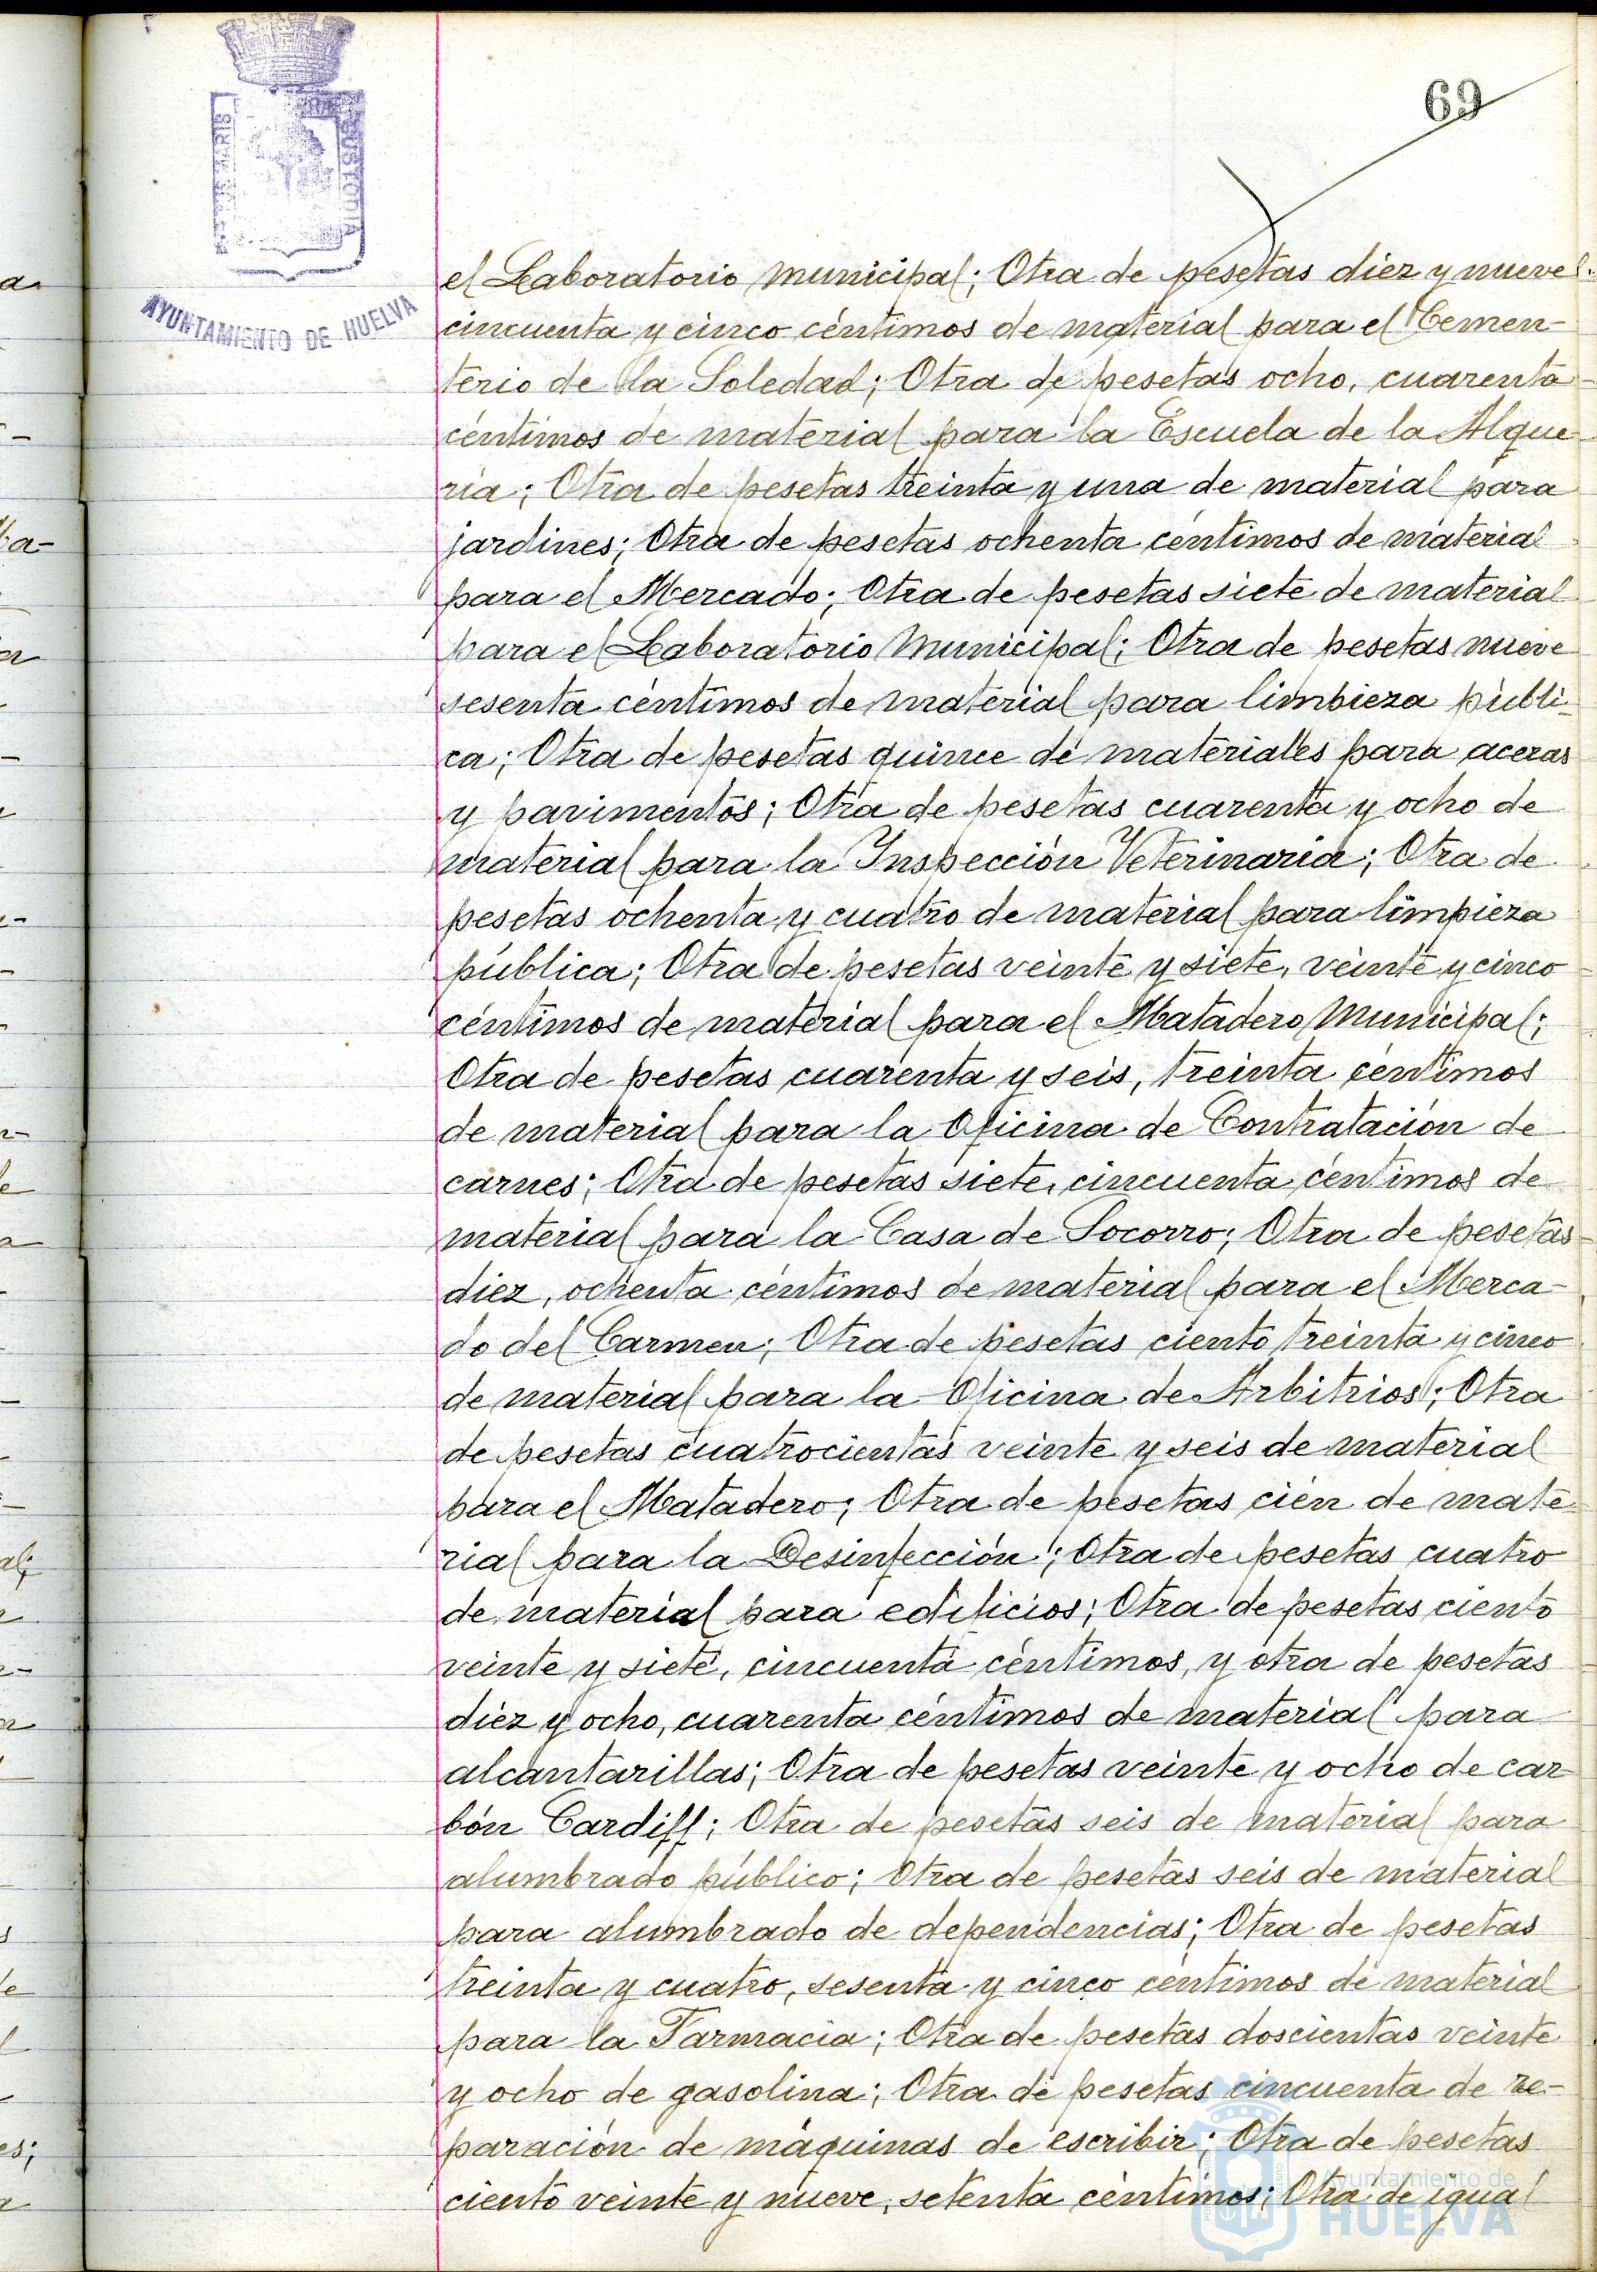 69
AYUNTAMIENTO DE HUELVA
el Laboratorio Municipal; Otra de pesetas diez y nueve
cincuenta y cinco céntimos de material para el Cemen-
terio de la Soledad; Otra de pesetas ocho, cuarenta
céntimos de material para la Escuela de la Alque-
ria; Otra de pesetas treinta y una de material para
jardines; Otra de pesetas ochenta céntimos de material
para el Mercado; Otra de pesetas siete de material
para el Laboratorio Municipal; Otra de pesetas nueve
sesenta céntimos de material para limbieza públi-
ca; Otra de pesetas quince de materiales para aceras
y pavimentos; Otra de pesetas cuarenta y ocho de
material para la Inspección Veterinaria; Otra de
pesetas ochenta y cuatro de material para limpieza
pública; Otra de pesetas veinte y siete, veinte y cinco
céntimos de material para el Matadero Municipal;
Otra de pesetas cuarenta y seis, treinta céntimos
de material para la Oficina de Contratación de
carnes; Otra de pesetas siete, cincuenta céntimos de
material para la Casa de Socorro; Otra de pesetas
diez, ochenta céntimos de material para el Merca-
do del Carmen; Otra de pesetas ciento treinta y cinco
de material para la Oficina de Arbitrios; Otra
de pesetas cuatrocientas veinte y seis de material
para el Matadero; Otra de pesetas cien de mate-
rial para la Desinfección; Otra de pesetas cuatro
de material para edificios; Otra de pesetas ciento
veinte y siete, cincuenta céntimos, y otra de pesetas
diez y ocho, cuarenta céntimos de material para
alcantarillas; Otra de pesetas veinte y ocho de car-
bón Cardiff; Otra de pesetas seis de material para
alumbrado público; Otra de pesetas seis de material
para alumbrado de dependencias; Otra de pesetas
treinta y cuatro, sesenta y cinco céntimos de material
para la Farmacia; Otra de pesetas doscientas veinte
y ocho de gasolina; Otra de pesetas cincuenta de re-
paración de máquinas de escribir; Otra de pesetas
ciento veinte y nueve, setenta céntimos; Otra de igual
Ayuntamiento de
HUELVA